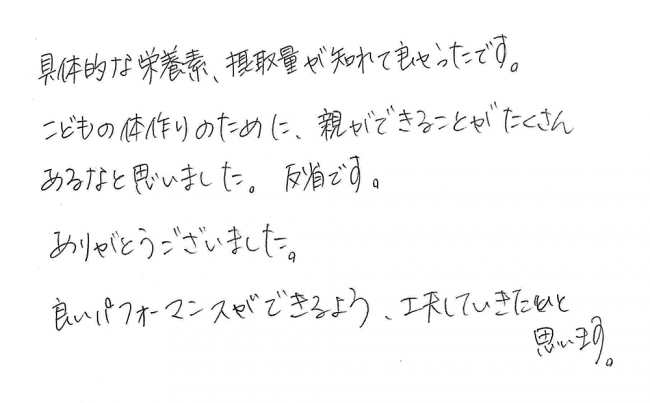 具体的な栄養素、摂取量が知れて良かったです。
こどもの体作りのために、親ができることがたくさん
あるなと思いました。 反省です。
ありがとうございました。
良いパフォーマンスができるよう、工夫していきたいと
思います。